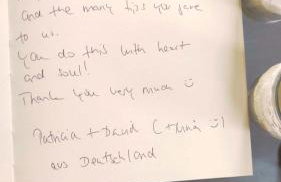 and the many tips you gave
to us.
You do this with heart
and soul!
Thank you very much ☺
Patricia + David (+ Ninia ☺)
aus Deutschland